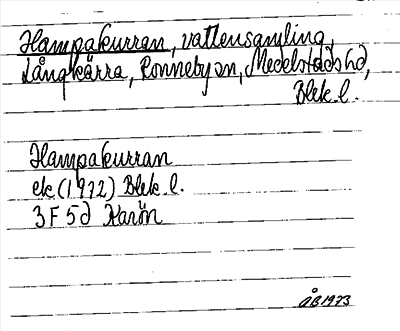 Hampakurran, vattensamling,
Långkärra, Ronnebyön, Medelstads hd,
Blek. l.
Hampakurran
ek (1972) Blek. l.
3F 5d Karön
ÅB 1973